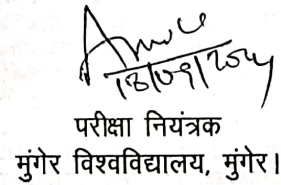 13/09/2024
परीक्षा नियंत्रक
मुंगेर विश्वविद्यालय, मुंगेर।